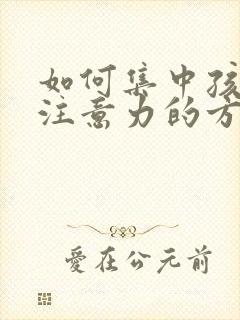 如何集中孩
注意力的方
愛在公元前